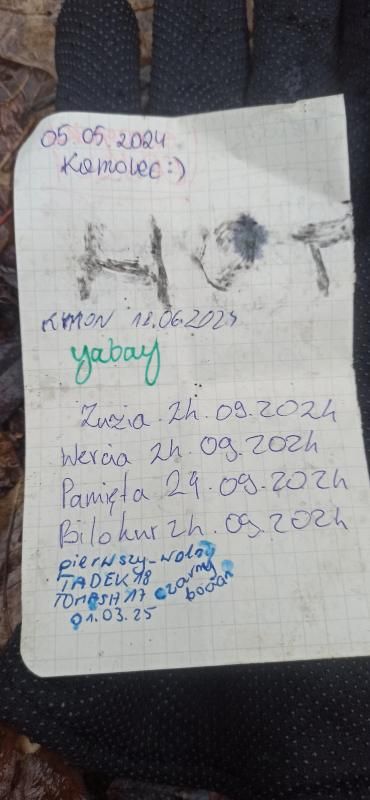 05.05.2024
Kamolec:)
HOT
KYMON 12.06.2024
yabay
Zuzia 24.09.2024
Wercia 24.09.2024
Pamięta 24.09.2024
Bilokur 24.09.2024
pierwszy-wolny
TADEK18 czarny
TOMASH17 bocian
01.03.25